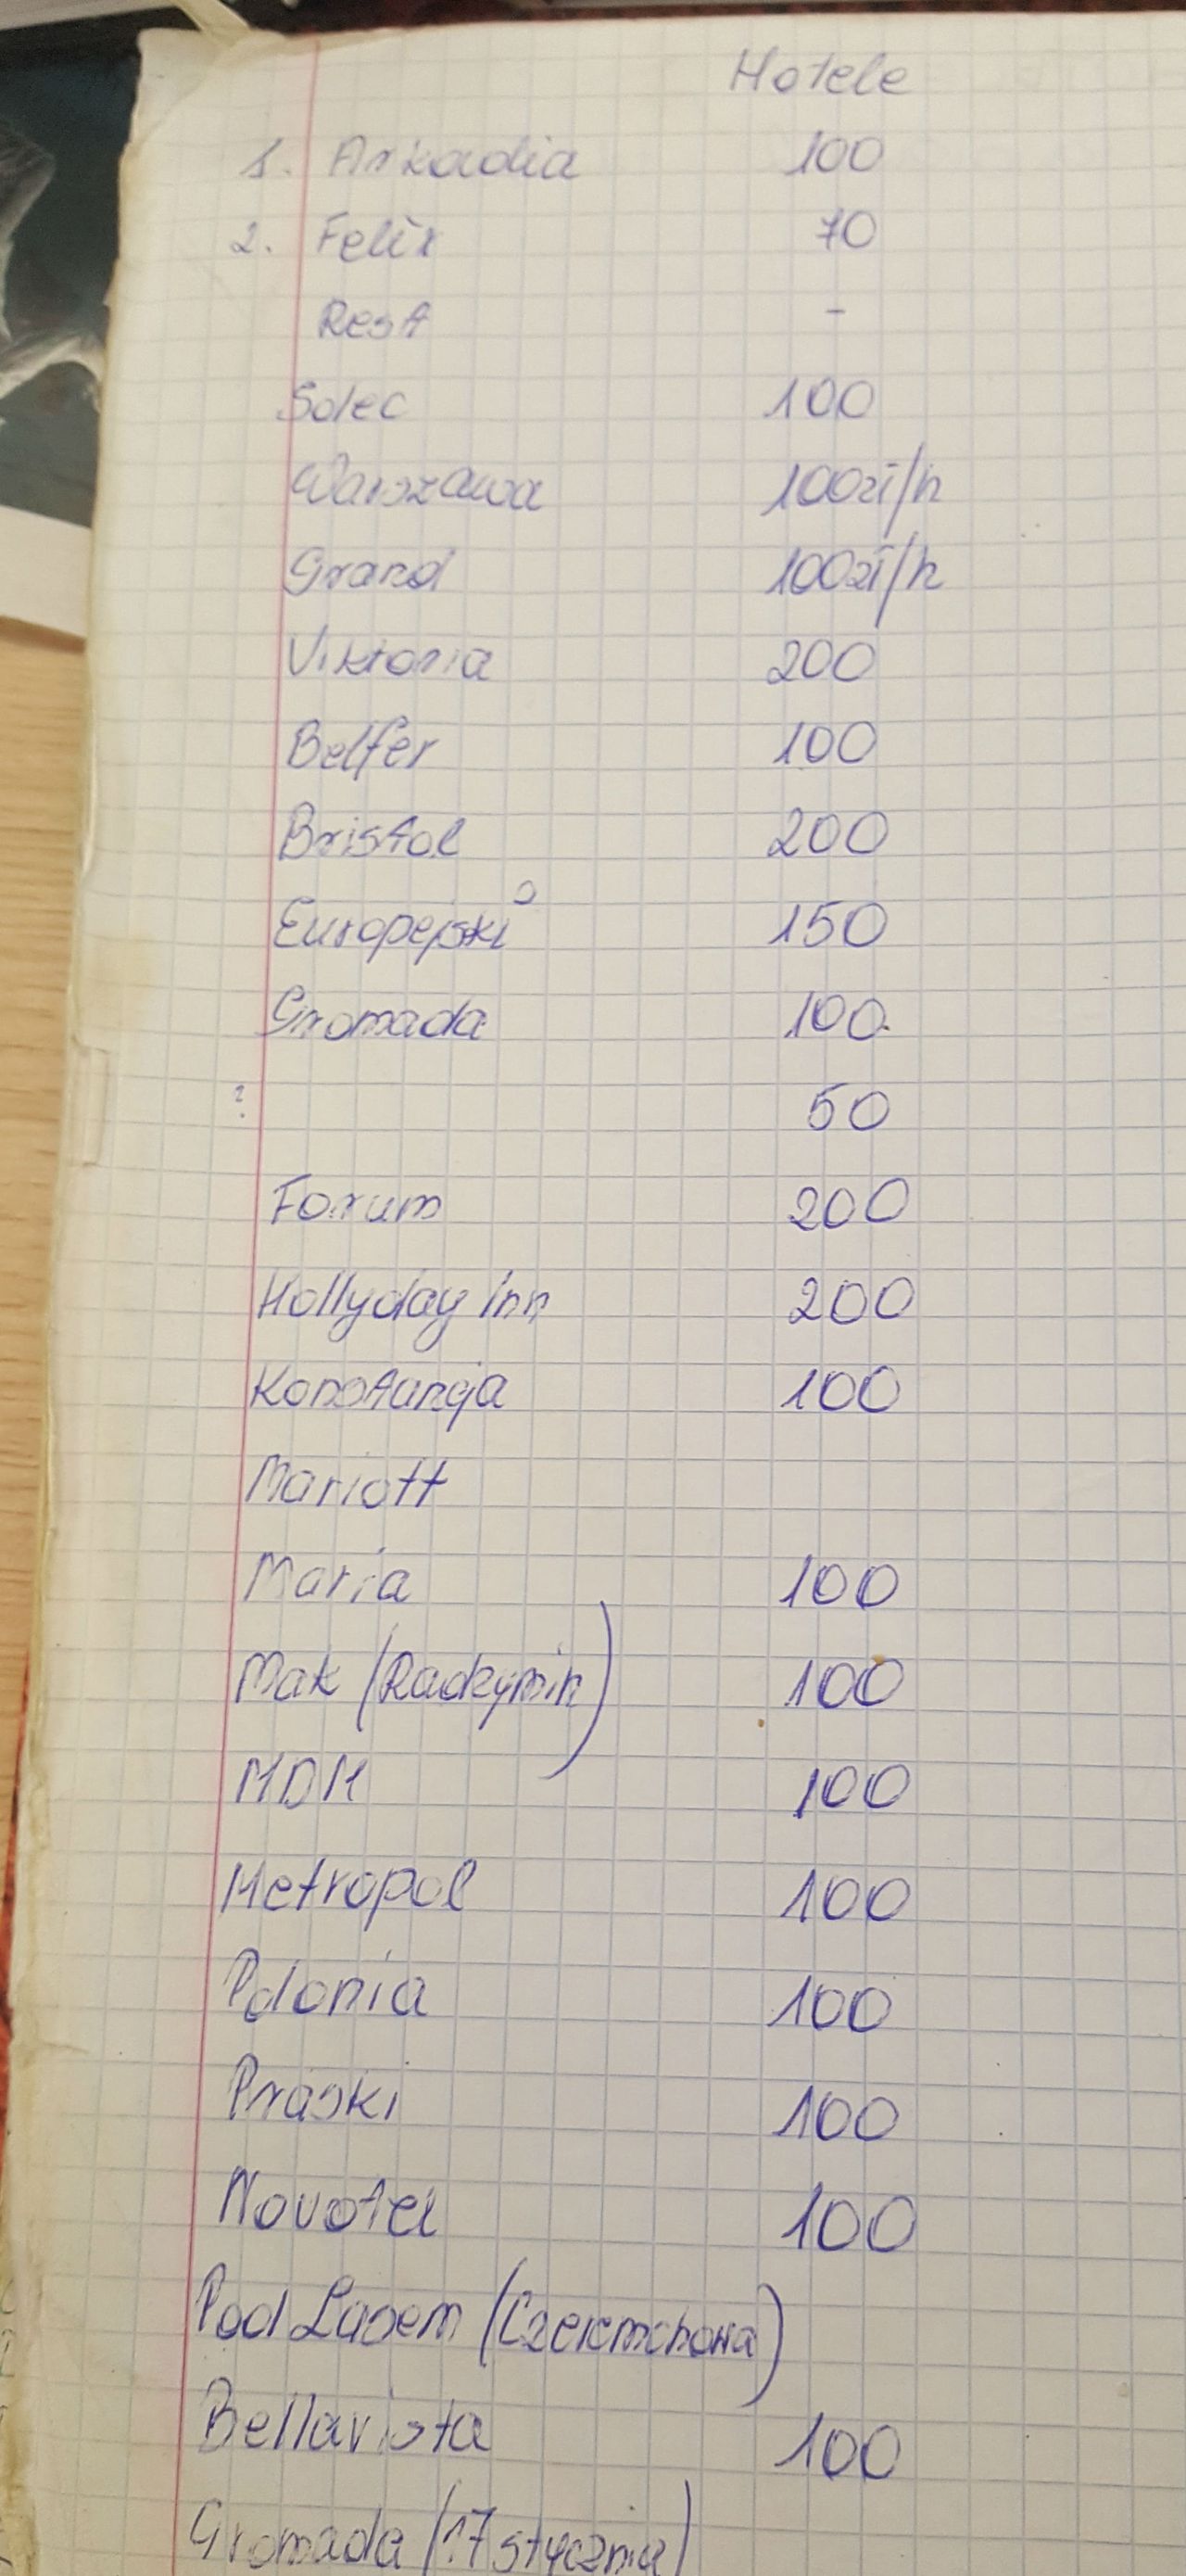 Hotele
1. Arkadia 100
2. Felix 70
Rest -
Solec 100
Warszawa 100zł/h
Grand 100zł/h
Viktoria 200
Belfer 100
Bristol 200
Europejski 150
Gromada 100
? 50
Forum 200
Hollyday Inn 200
Konstancja 100
Mariott
Maria 100
Mak (Radzymin) 100
MDM 100
Metropol 100
Polonia 100
Praski 100
Novotel 100
Pod Lasem (Czeremchowa)
Bellavista 100
Gromada (17 stycznia)